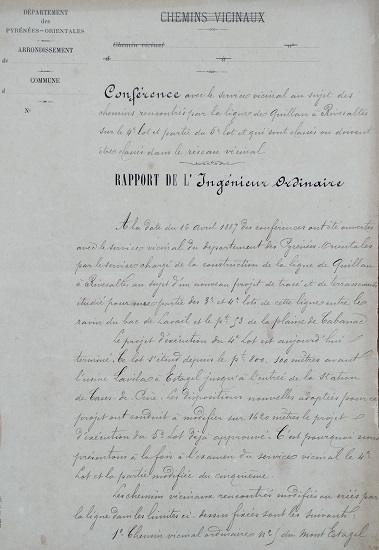 DÉPARTEMENT
des
PYRÉNÉES-ORIENTALES
ARRONDISSEMENT
de
COMMUNE
d
No
CHEMINS VICINAUX
Chemin vicinal
d à
Conférence avec le service vicinal au sujet des
chemins rencontrés par la ligne de Quillan à Rivesaltes
sur le 4e lot et partie du 5e lot et qui sont classés ou doivent
être classés dans le réseau vicinal
RAPPORT DE L'Ingénieur Ordinaire
A la date du 16 Avril 1887 des conférences ont été ouvertes
avec le service vicinal du département des Pyrénées-Orientales
par le service chargé de la construction de la ligne de Quillan
à Rivesaltes au sujet d'un nouveau projet de tracé et de terrassements
étudié pour une partie des 3e et 4e lots de cette ligne entre le
ravin du bac de Lavail et le pt 53 de la plaine de Cabanac
Le projet d'exécution du 4e lot est aujourd'hui
terminé. Ce lot s'étend depuis le pt 800, 100 mètres avant
l'usine Lavila à Estagel jusqu'à l'entrée de la Station
de Cases de Pène. Les dispositions nouvelles adoptées pour ce
projet ont conduit à modifier sur 1620 mètres le projet
d'exécution du 5e lot déjà approuvé. C'est pourquoi nous
présentons à la fois à l'examen du service vicinal le 4e
lot et la partie modifiée du cinquième.
Les chemins vicinaux rencontrés modifiés ou créés par
la ligne dans les limites ci-dessus fixées sont les suivants:
1o Chemin vicinal ordinaire No 5 du Mont Estagel